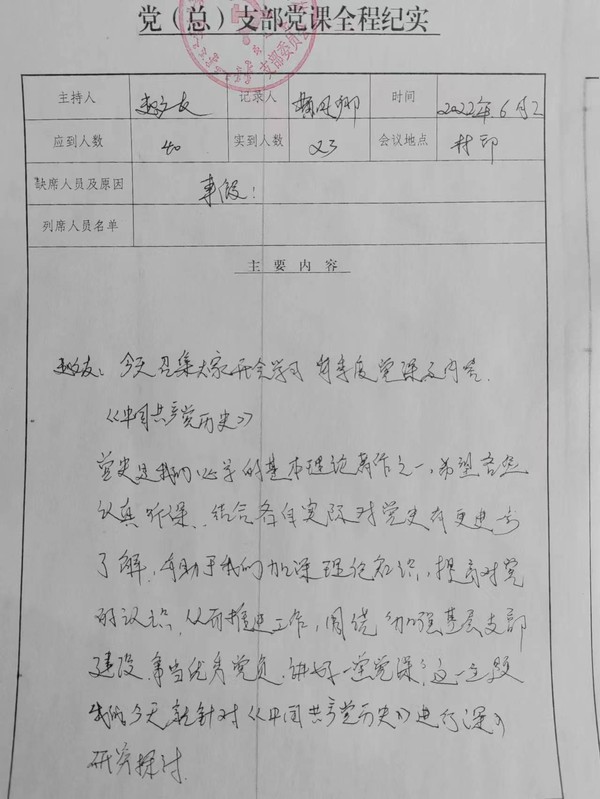 党（总）支部党课全程纪实
支部委员会
主持人 赵友 记录人 时间 2022年6月2
应到人数 40 实到人数 23 会议地点 村部
缺席人员及原因 事假！
列席人员名单
主要内容
赵友：今天召集大家开会学习 季度党课及内容.
《中国共产党历史》
党史是我们必学的基本理论著作之一，希望
认真听课，结合各自实际对党史有更进步
了解，有助于我们加深理论知识，提高对党
的认识，从而推进工作，围绕《加强基层支部
建设，争当优秀党员，讲好一堂党课》这一主题
我们今天就针对《中国共产党历史》进行深入
研究探讨.